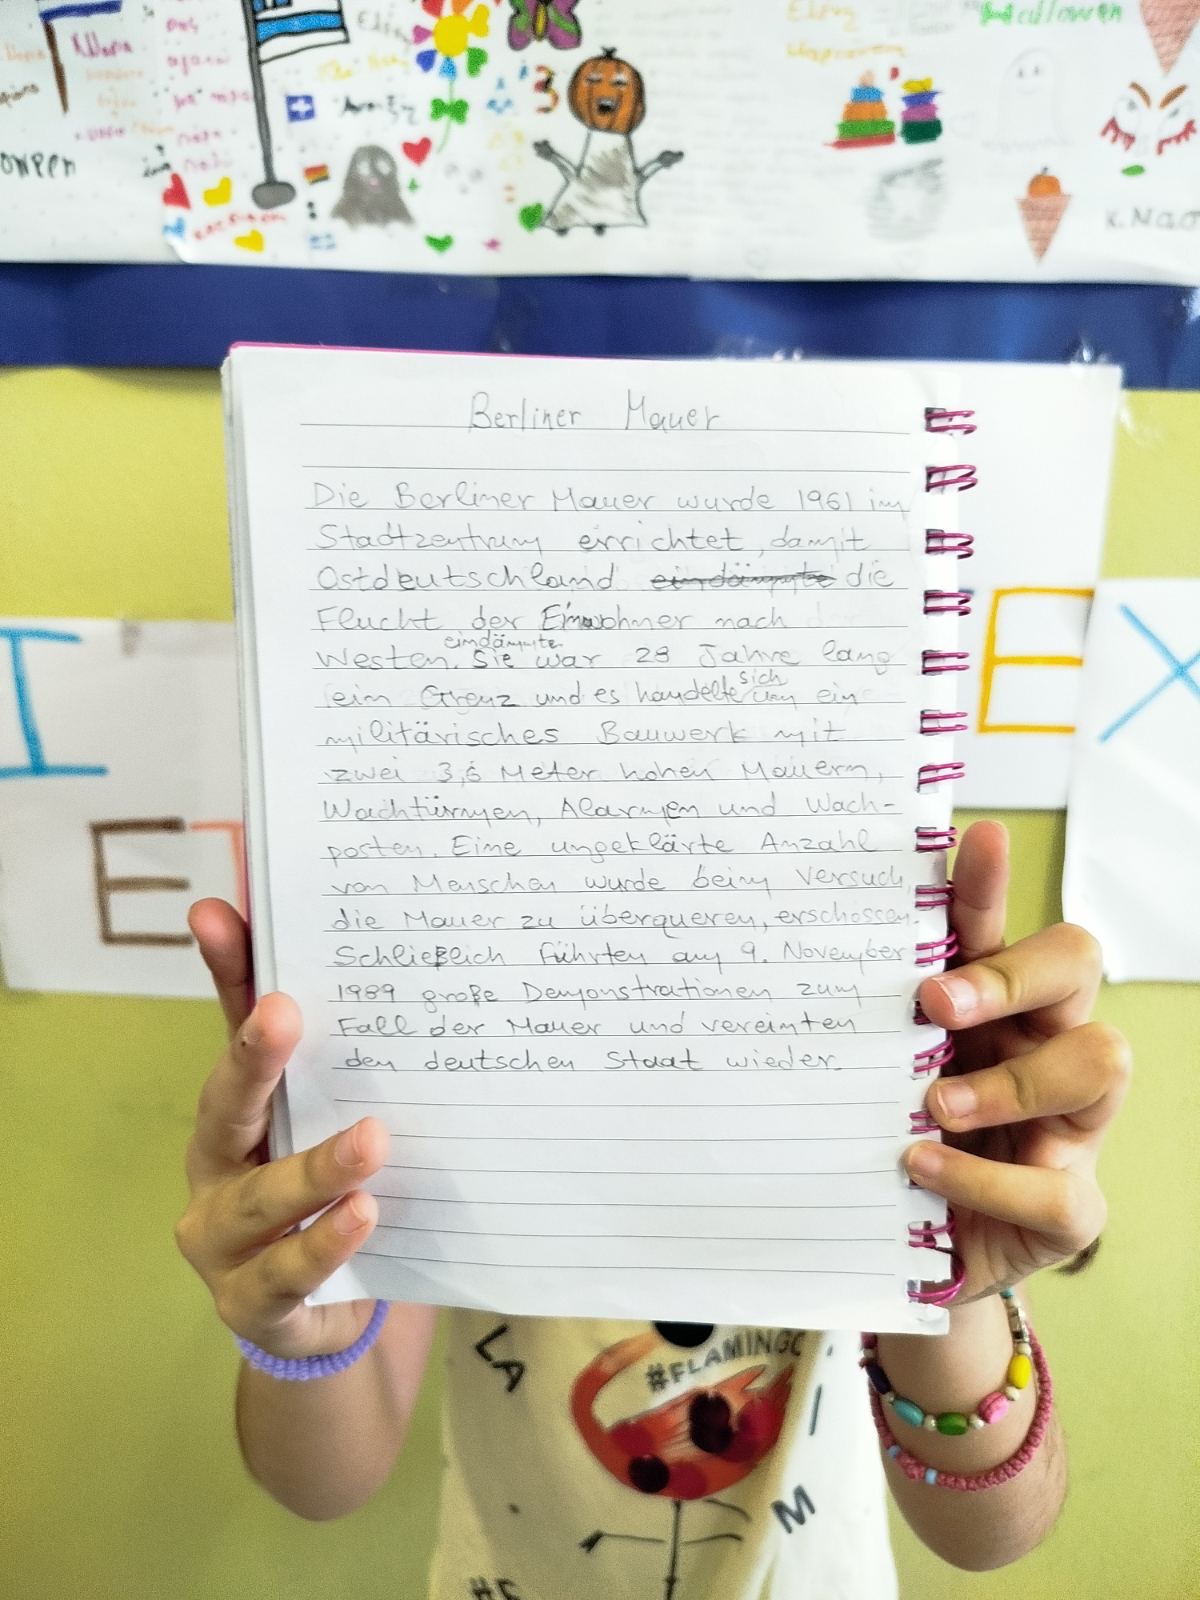 Hallowen
oween
K.Nao
I
EX
E
Berliner Mauer
Die Berliner Mauer wurde 1961 im
Stadtzentrum errichtet, damit
Ostdeutschland eindämmte die
Flucht der Einwohner nach
eindämmte
Westen. Sie war 28 Jahre lang
sich
ein Grenz und es handelte um ein
militärisches Bauwerk mit
zwei 3,6 Meter hohen Mauern,
Wachtürmen, Alarmen und Wach-
posten. Eine ungeklärte Anzahl
von Menschen wurde beim Versuch,
die Mauer zu überqueren, erschossen.
Schließlich führten am 9. November
1989 große Demonstrationen zum
Fall der Mauer und vereinten
den deutschen Staat wieder.
LA
#FLAMINGO
M